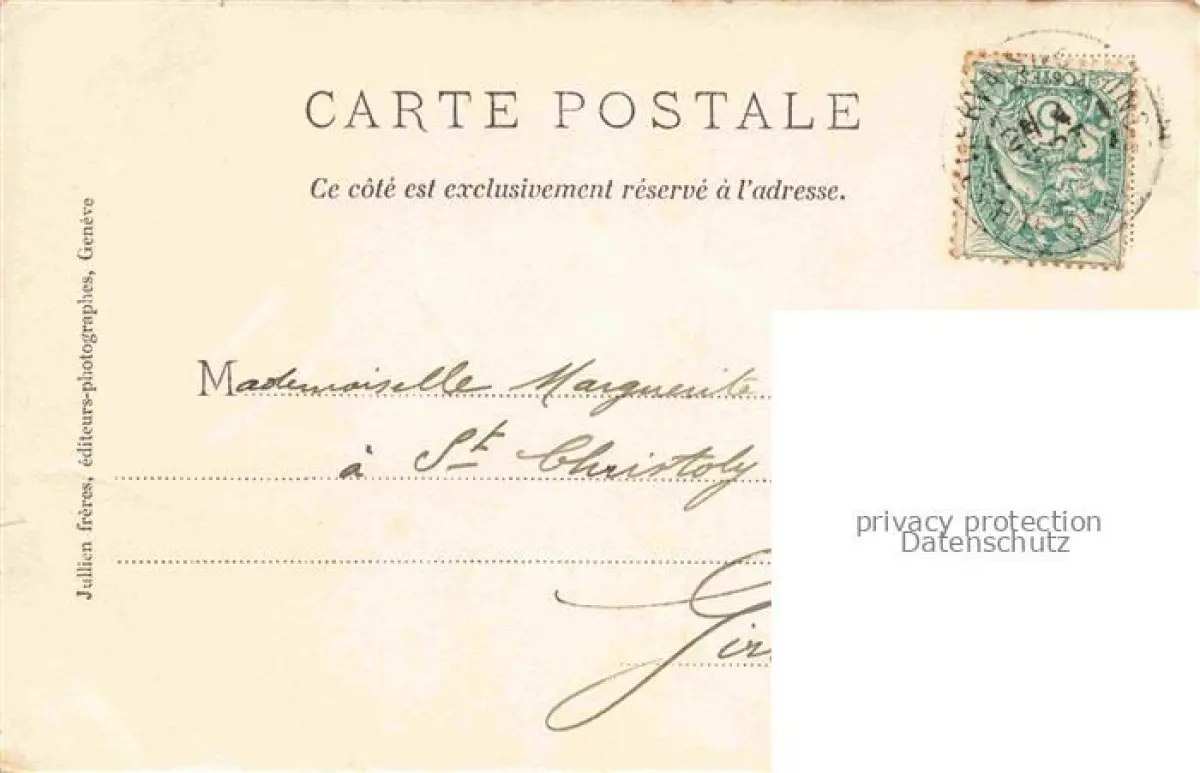 CARTE POSTALE
Ce côté est exclusivement réservé à l'adresse.
POSTES
5
Mademoiselle Marguerite
à St Christoly
Julien frères, éditeurs-photographes, Genève
privacy protection
Datenschutz